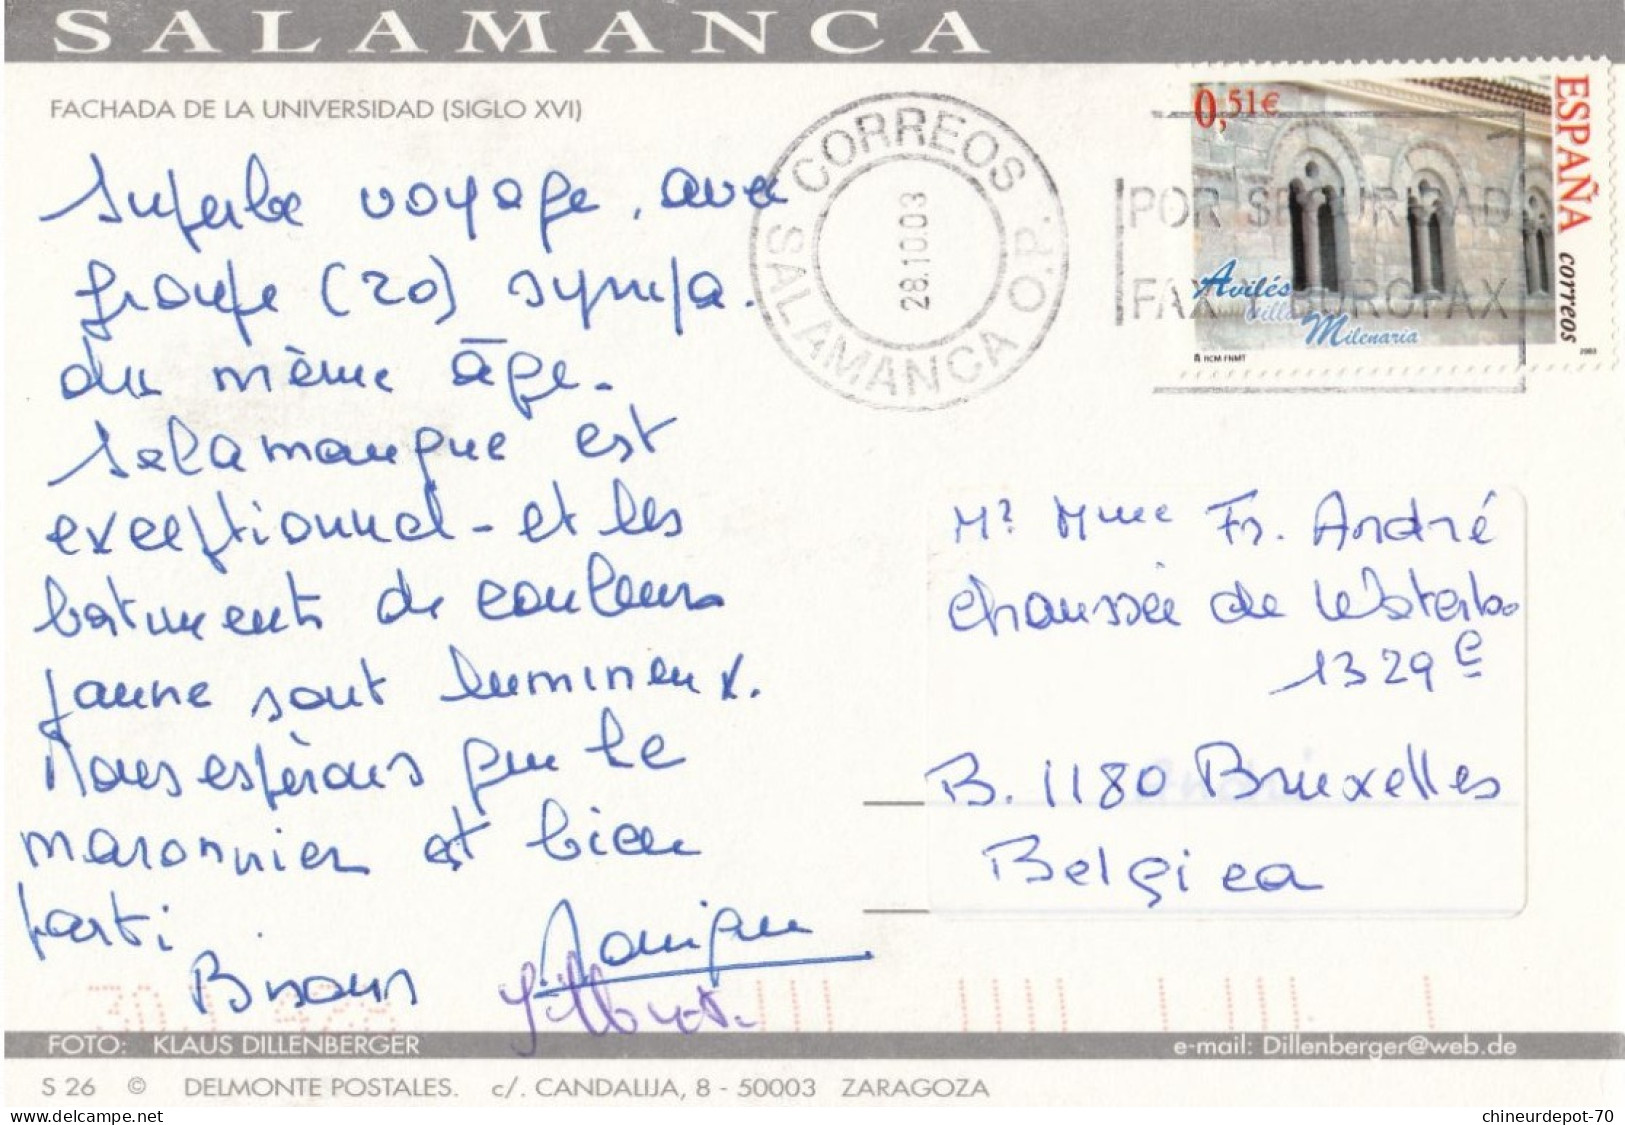 SALAMANCA
FACHADA DE LA UNIVERSIDAD (SIGLO XVI)
Superbe voyage, avec
groupe (20) sympa.
du même âge.
Salamanque est
exceptionnel - et les
batiments de couleur
jaune sont lumineux.
Nous espérons que le
maronnier est bien
parti
Bisous
Gilbert.
CORREOS
SALAMANCA O.P.
28.10.03
POR SEGURIDAD
FAX BUROFAX
0,51€
ESPAÑA
correos
Avilés
villa
Milenaria
RCM-FNMT
2003
Mr Mme Fr. André
Chaussée de Waterloo
1329 C
B. 1180 Bruxelles
Belgica
FOTO: KLAUS DILLENBERGER
e-mail: Dillenberger@web.de
S 26 © DELMONTE POSTALES. c/. CANDALIJA, 8 - 50003 ZARAGOZA
delcampe.net
chineurdepot-70